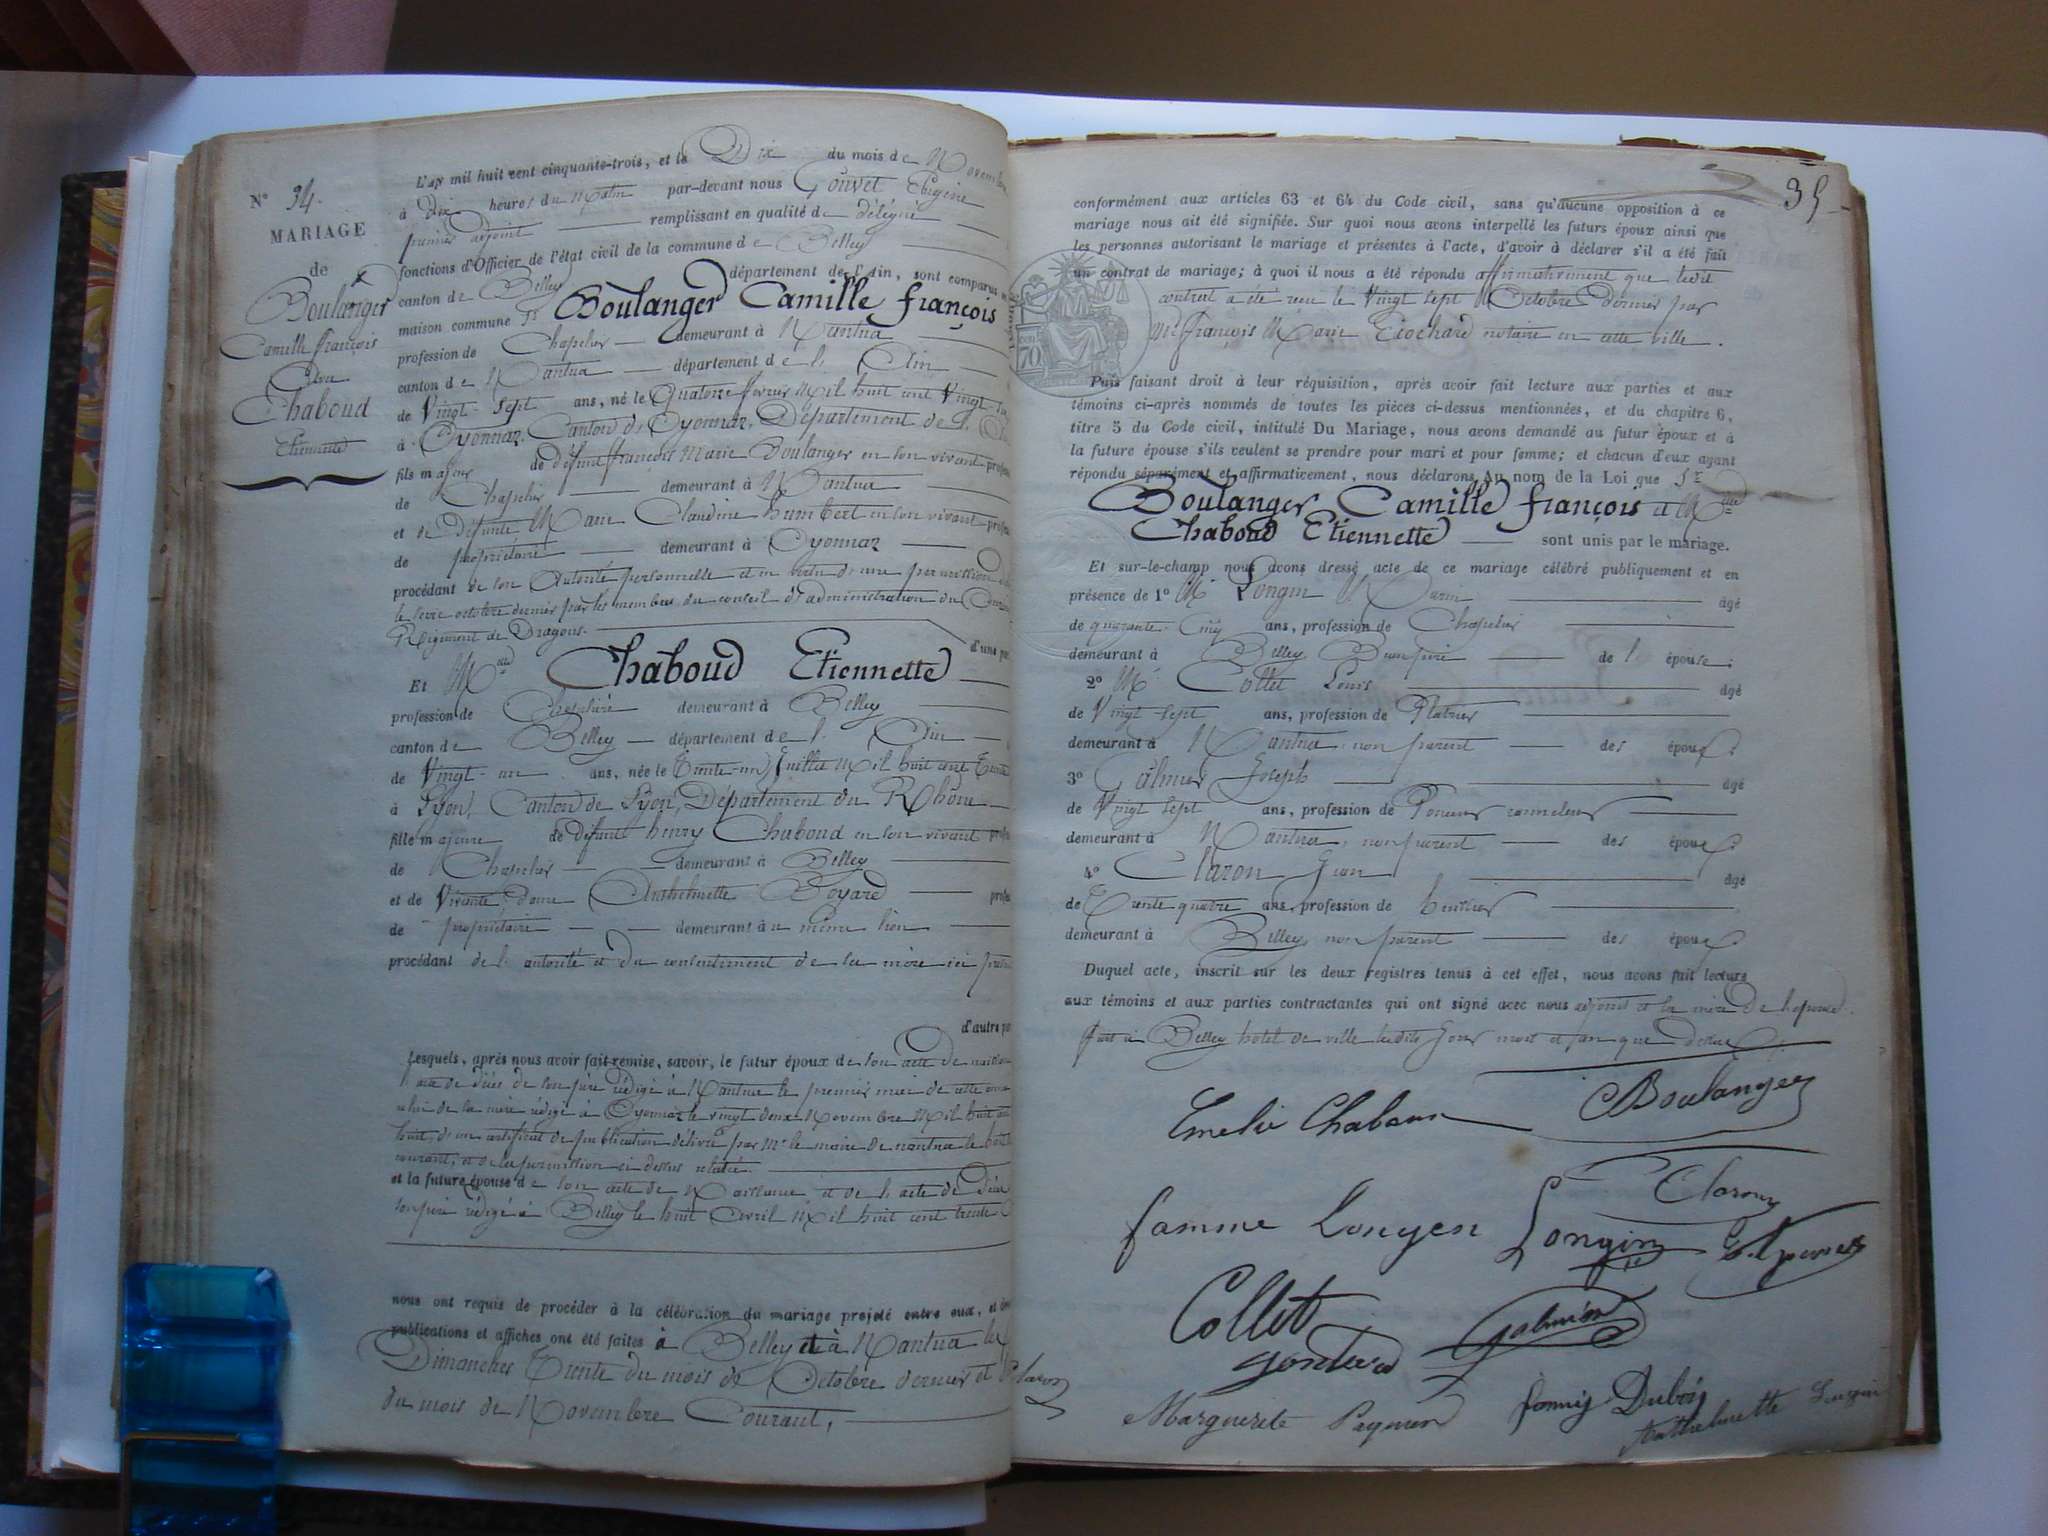 N° 34.
MARIAGE
de
Boulanger
Camille françois
Et
Chaboud
Etiennette
L'an mil huit cent cinquante-trois, et le Dix du mois de Novembre
à dix heures du Matin par-devant nous Gouvet Eugène
premier adjoint remplissant en qualité de délégué
fonctions d'Officier de l'état civil de la commune de Belley
canton de Belley département de l'Ain, sont comparus en
maison commune Sr Boulanger Camille françois
profession de Chapelier demeurant à Nantua
canton de Nantua département de l' Ain
de Vingt-Sept ans, né le Quatorze février Mil huit cent Vingt-
à Oyonnax, Canton d'Oyonnax, Département de l'
fils majeur de défunt françois Marie Boulanger en son vivant profes
de Chapelier demeurant à Nantua
et de Défunte Marie Claudine humbert en son vivant profes
de propriétaire demeurant à Oyonnax
procédant de son Autorité personnelle et en vertu d'une permission
le seize octobre dernier par les membres du conseil d'administration du
Régiment de Dragons. d'une par
Et Melle Chaboud Etiennette
profession de Chapelière demeurant à Belley
canton de Belley département de l' Ain
de Vingt-un ans, née le Trente-un Juillet Mil huit cent Trente
à Lyon, Canton de Lyon, Département du Rhône
fille majeure de défunt henry Chaboud en son vivant profes
de Chapelier demeurant à Belley
et de Vivante dame Anthelmette Boyard profes
de propriétaire demeurant au même lieu
procédant de l'autorité et du consentement de sa mère ici
d'autre par
Lesquels, après nous avoir fait remise, savoir, le futur époux de son acte de
acte de décès de son père rédigé à Nantua le premier mai de cette
celui de sa mère rédigé à Oyonnax le vingt deux Novembre Mil huit
huit, d'un certificat de publication délivré par Mr le maire de nantua le
courant, et de la permission ci dessus relatée.
et la future épouse de son acte de Naissance et de l'acte de
son père rédigé à Belley le huit Avril Mil huit cent trente
nous ont requis de procéder à la célébration du mariage projeté entre eux, et
publications et affiches ont été faites à Belley et à Nantua les
Dimanches Trente du mois de Octobre dernier et
du mois de Novembre Courant,
Claron
35
conformément aux articles 63 et 64 du Code civil, sans qu'aucune opposition à ce
mariage nous ait été signifiée. Sur quoi nous avons interpellé les futurs époux ainsi que
les personnes autorisant le mariage et présentes à l'acte, d'avoir à déclarer s'il a été fait
un contrat de mariage; à quoi il nous a été répondu affirmativement que ledit
contrat a été reçu le Vingt sept Octobre dernier par
Me françois Marie Ecochard notaire en cette ville.
70
Puis faisant droit à leur réquisition, après avoir fait lecture aux parties et aux
témoins ci-après nommés de toutes les pièces ci-dessus mentionnées, et du chapitre 6,
titre 5 du Code civil, intitulé Du Mariage, nous avons demandé au futur époux et à
la future épouse s'ils veulent se prendre pour mari et pour femme; et chacun d'eux ayant
répondu séparément et affirmativement, nous déclarons Au nom de la Loi que Sr
Boulanger Camille françois et Melle
Chaboud Etiennette sont unis par le mariage.
Et sur-le-champ nous avons dressé acte de ce mariage célébré publiquement et en
présence de 1° M Longin Marin âgé
de quarante Cinq ans, profession de Chapelier
demeurant à Belley Beau père de l' épouse;
2° Mr Collet Louis âgé
de Vingt sept ans, profession de Plâtrier
demeurant à Nantua non parent des époux;
3° Galmier Joseph âgé
de Vingt sept ans, profession de
demeurant à Nantua, non parent des époux;
4° Claron Jean âgé
de Trente quatre ans, profession de huissier
demeurant à Belley non parent des époux
Duquel acte, inscrit sur les deux registres tenus à cet effet, nous avons fait lecture
aux témoins et aux parties contractantes qui ont signé avec nous adjoint et la mère de l'épouse.
fait à Belley hôtel de ville lesdits Jour mois et an que dessus
Emelie Chaboud Boulanger
Claron
famme Longen Longin
Collet Galmier
Marguerite Fanny Dubois
Anthelmette Longin